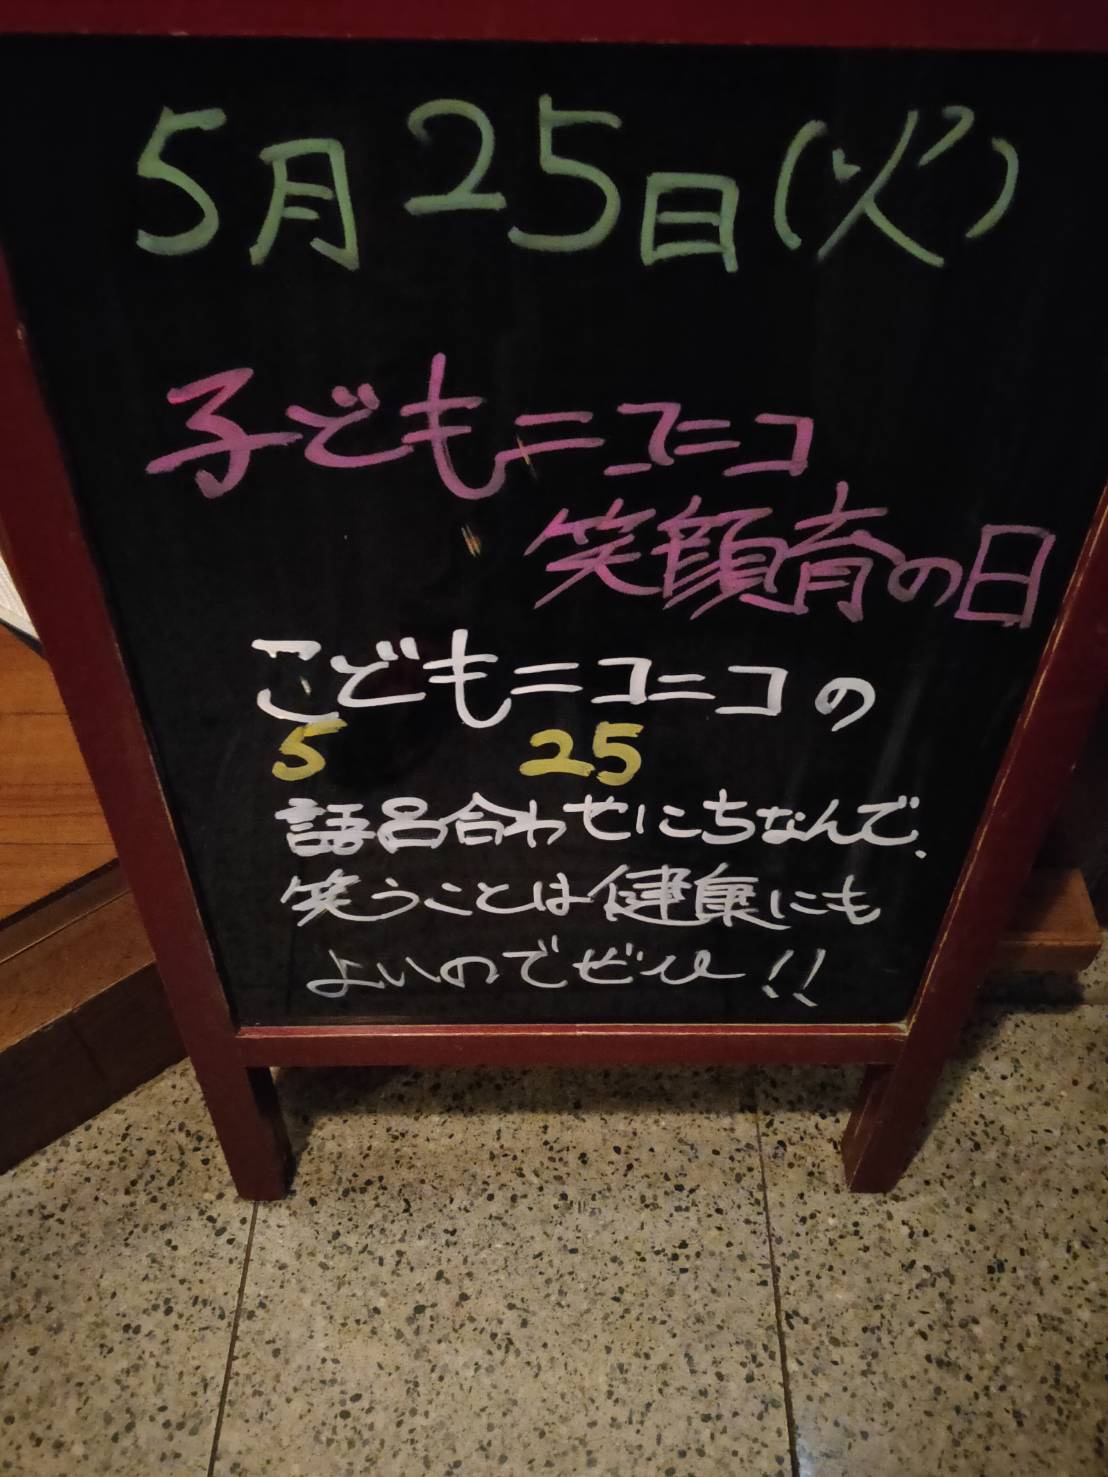 5月25日(火)
子どもニコニコ
笑顔育の日
こどもニコニコの
5 25
語呂合わせにちなんで、
笑うことは健康にも
よいのでぜひ!!